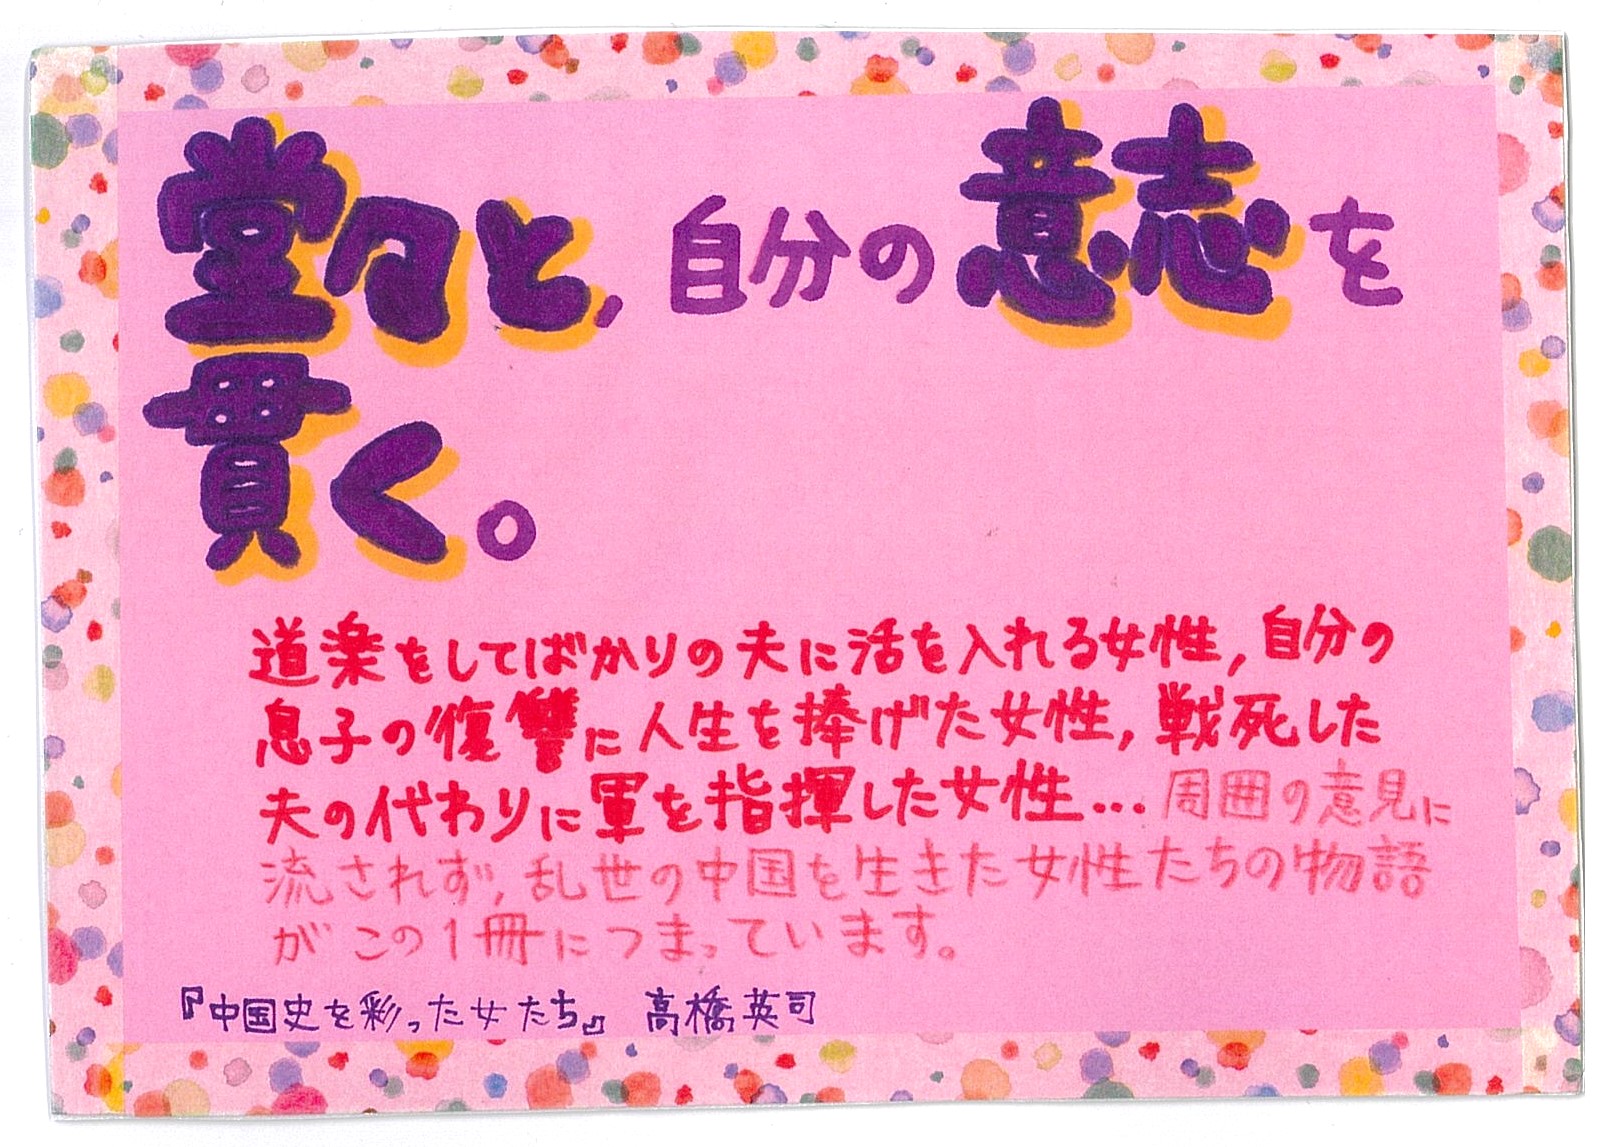 堂々と,自分の意志を
貫く。
道楽をしてばかりの夫に活を入れる女性,自分の
息子の復讐に人生を捧げた女性,戦死した
夫の代わりに軍を指揮した女性…周囲の意見に
流されず,乱世の中国を生きた女性たちの物語
がこの1冊につまっています。
『中国史を彩った女たち』 高橋英司